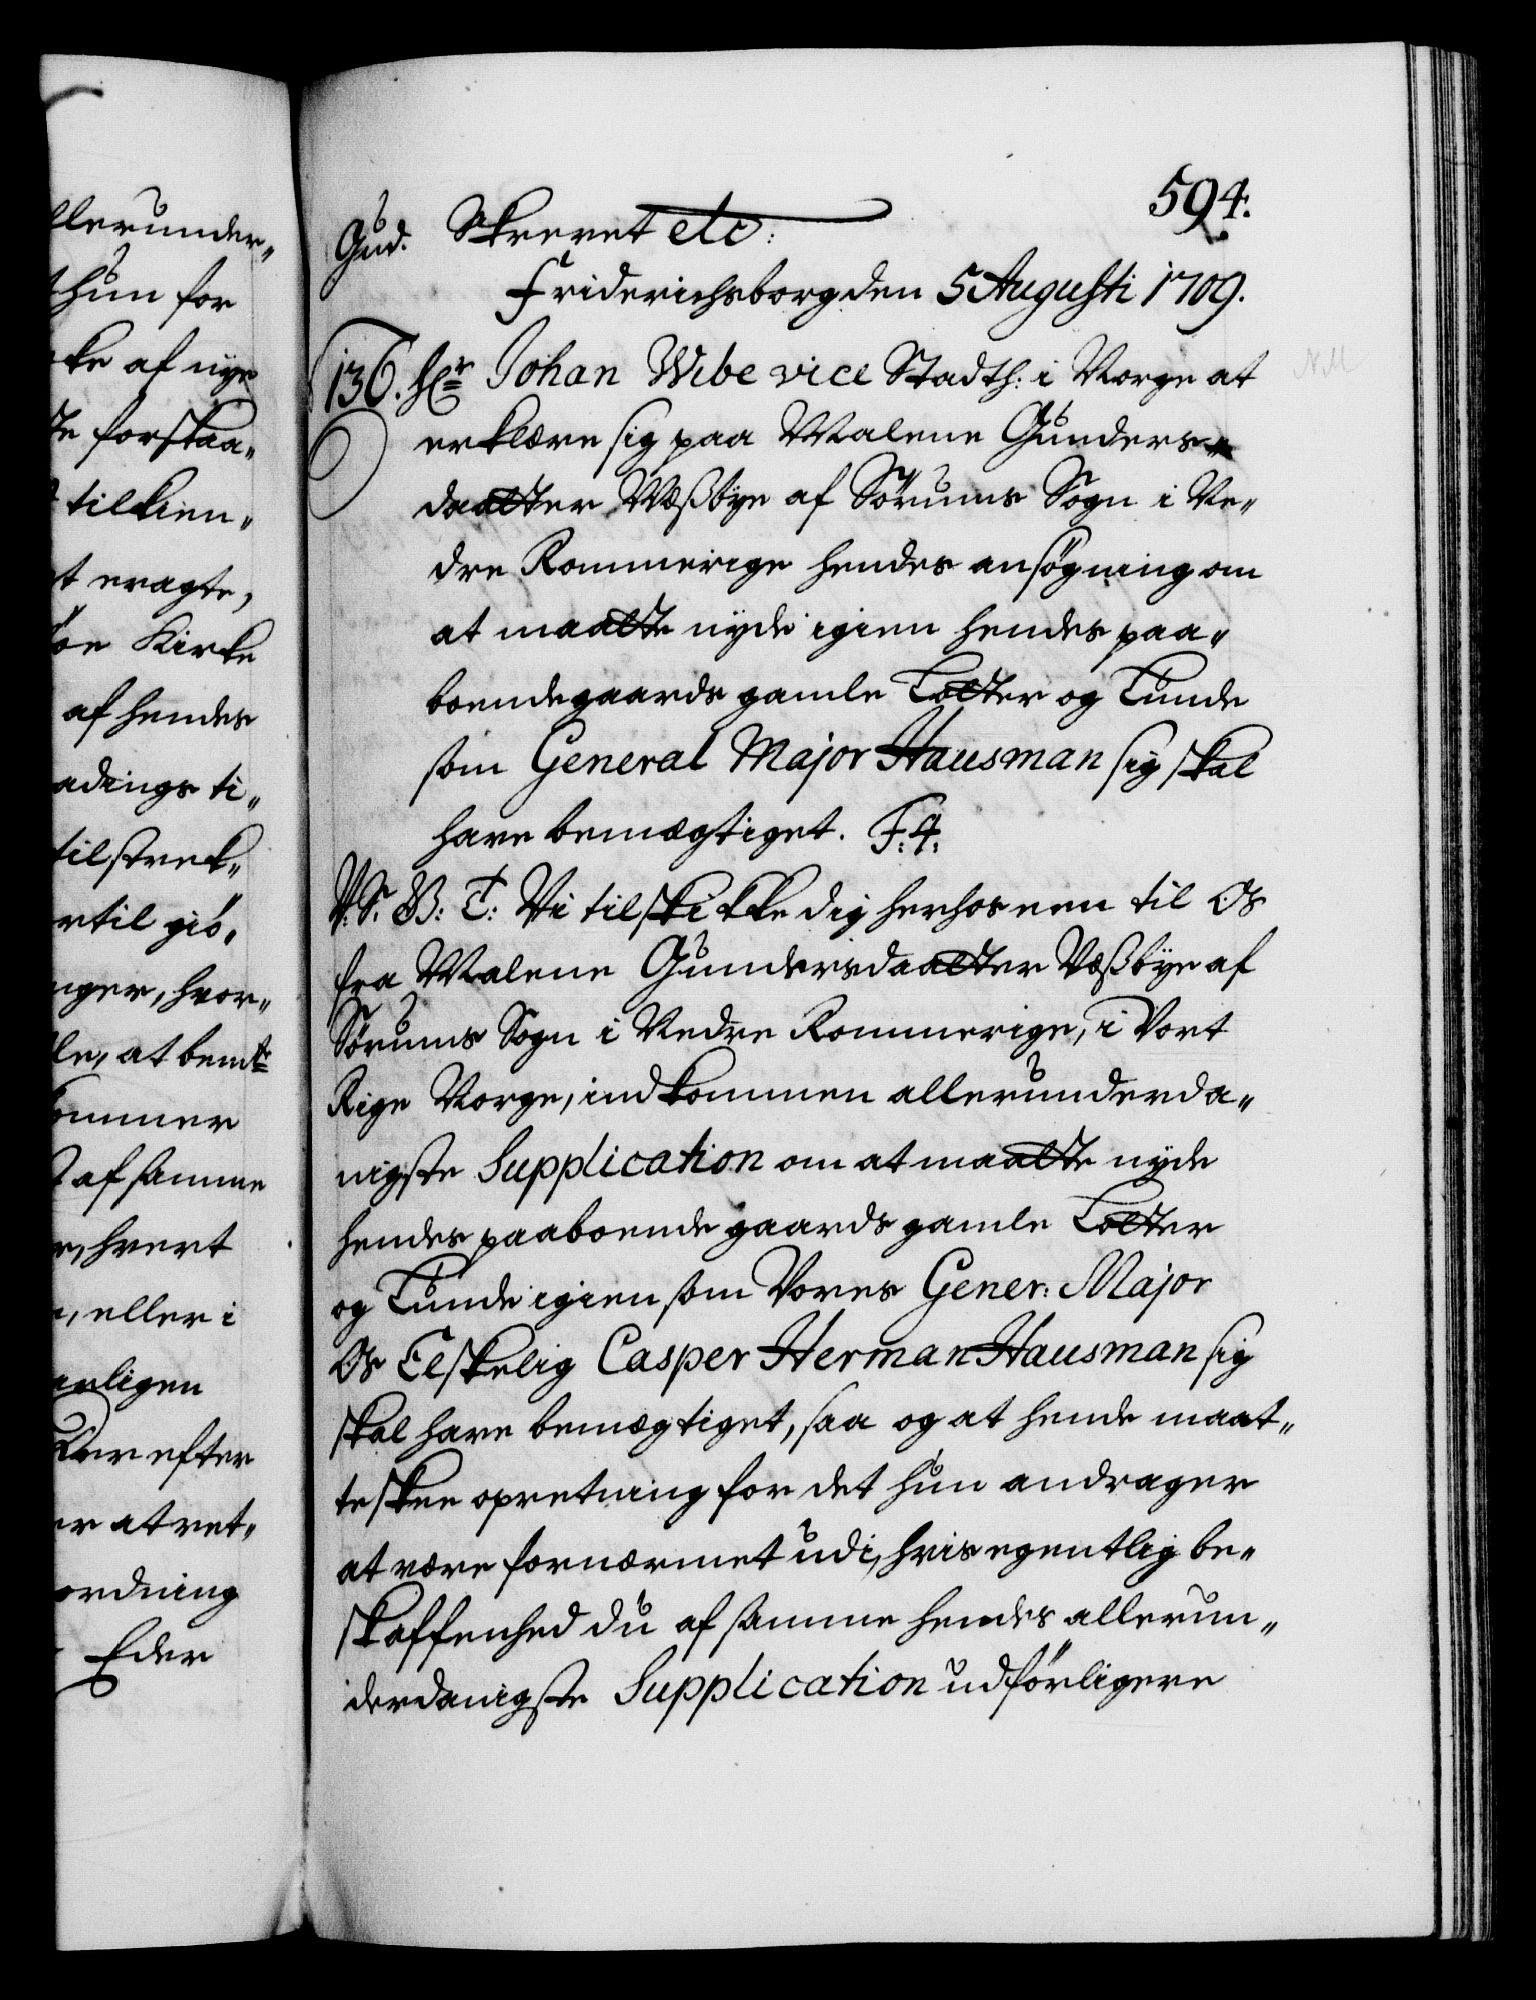 594.
Gud. Skrevet etc:
Friderichsborg den 5 Augusti 1709.
136. Hr Johan Wibe vice Stadth: i Norge at
erklære sig paa Malene Gunders„
daatter Weßbye af Sørums Sogn i Ne„
dre Rommerige hendes ansøgning om
at maatte nyde igien hendes paa„
boende gaards gamle Totter og Tunde
som General Major Hausman sig skal
have bemægtiget. F: 4.
V. S. G: T: Vi tilskikke dig herhos een til Os
fra Malene Gundersdaatter Veßbye af
Sørums Sogn i Nedre Rommerige, i Vort
Rige Norge, indkommen allerunderda„
nigste Supplication om at maatte nyde
hendes paaboende gaards gamle Totter
og Tunde igien som Vores Gener: Major
Os Elskelig Casper Herman Hausman sig
skal have bemægtiget, saa og at hende maat„
te skee opretning for det hun andrager
at være fornærmet udi, hvis egentlig be„
skaffenhed du af samme hendes allerun„
derdanigste Supplication udførligere
llerunder„
hun for
ke af nye
te forstaa„
tilkien„
t eragte,
öe Kirke
af hendes
adings ti„
tilstrek„
rtil giö„
nger, hvor„
le, at bemte
ommer
af samme
r, hvert
, eller i
anligen
der efter
er at ret„
ordning
Eder